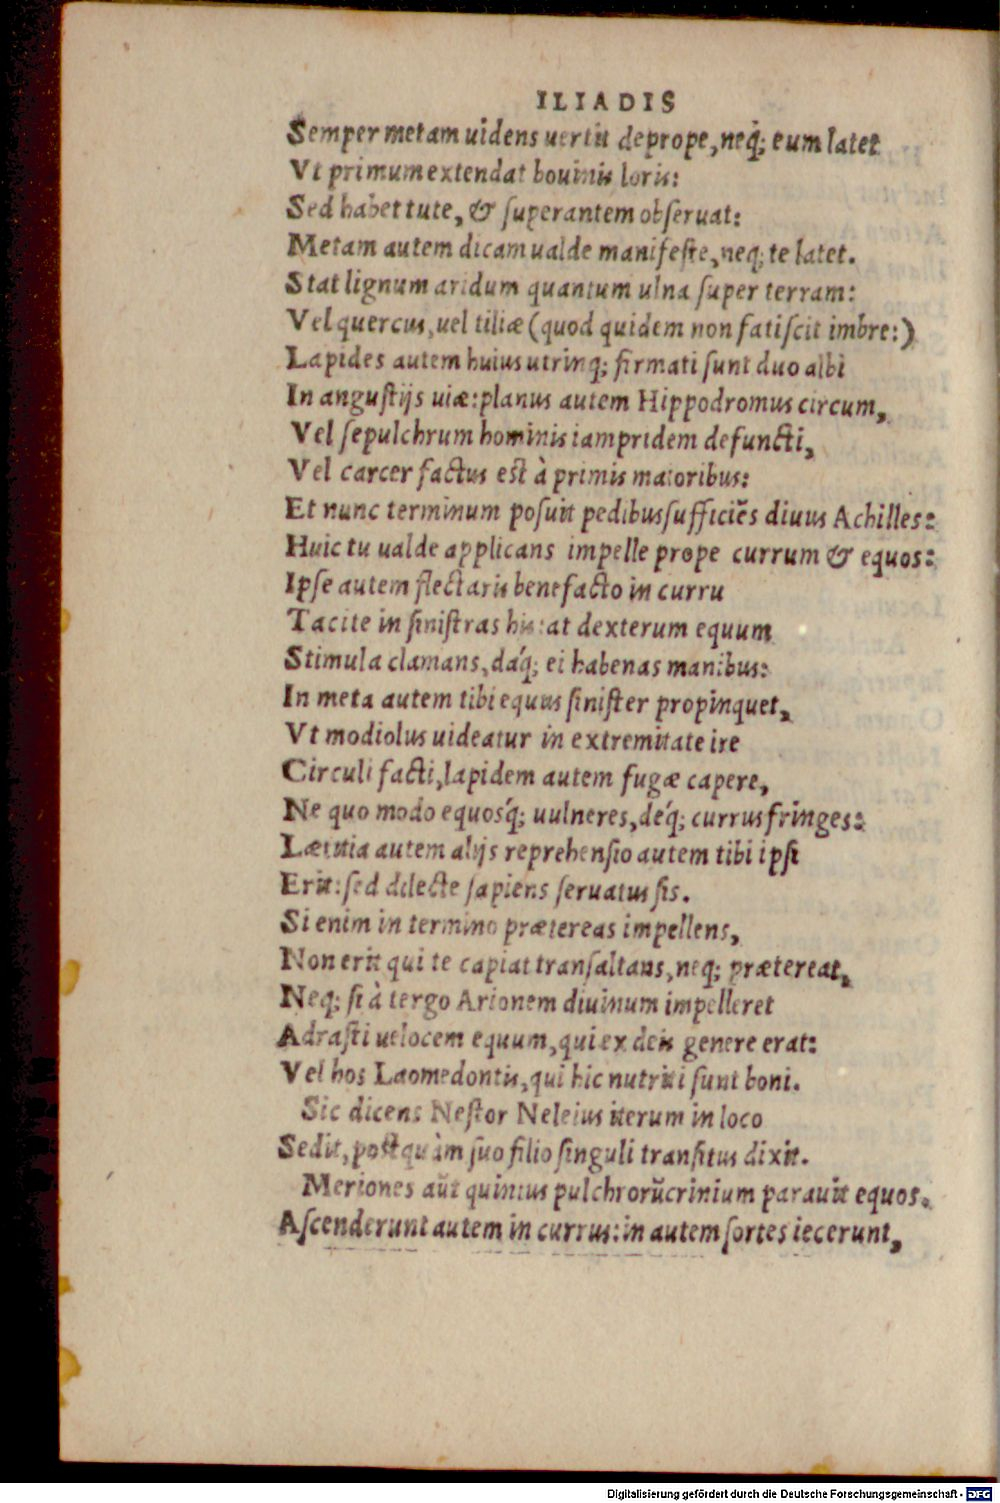 ILIADIS
Semper metam uidens uertit deprope, neq́; eum latet
Vt primum extendat bouinis loris:
Sed habet tute, & ſuperantem obſeruat:
Metam autem dicam ualde manifeſte, neq; te latet.
Stat lignum aridum quantum ulna ſuper terram:
Vel quercus, uel tiliæ (quod quidem non fatiſcit imbre:)
Lapides autem huius utrinq; firmati ſunt duo albi
In anguſtijs uiæ: planus autem Hippodromus circum,
Vel ſepulchrum hominis iampridem defuncti,
Vel carcer factus eſt à primis maioribus:
Et nunc terminum poſuit pedibus ſufficiẽs diuus Achilles:
Huic tu ualde applicans impelle prope currum & equos:
Ipſe autem flectaris benefacto in curru
Tacite in ſiniſtras at dexterum equum
Stimula clamans, dáq; ei habenas manibus:
In meta autem tibi equus ſiniſter propinquet,
Vt modiolus uideatur in extremitate ire
Circuli facti, lapidem autem fugæ capere,
Ne quo modo equosq́; uulneres, déq; currus fringes:
Lætitia autem alijs reprehenſio autem tibi ipſi
Erit: ſed dilecte ſapiens ſeruatus ſis.
Si enim in termino prætereas impellens,
Non erit qui te capiat tranſaltans, neq; prætereat,
Neq; ſi à tergo Arionem diuinum impelleret
Adraſti uelocem equum, qui ex deis genere erat:
Vel hos Laomedontis, qui hic nutriti ſunt boni.
Sic dicens Neſtor Neleius iterum in loco
Sedit, poſtquàm ſuo filio ſinguli tranſitus dixit.
Meriones aũt quintus pulchrorũ crinium parauit equos.
Aſcenderunt autem in currus: in autem ſortes iecerunt,
Digitalisierung gefördert durch die Deutsche Forschungsgemeinschaft - DFG